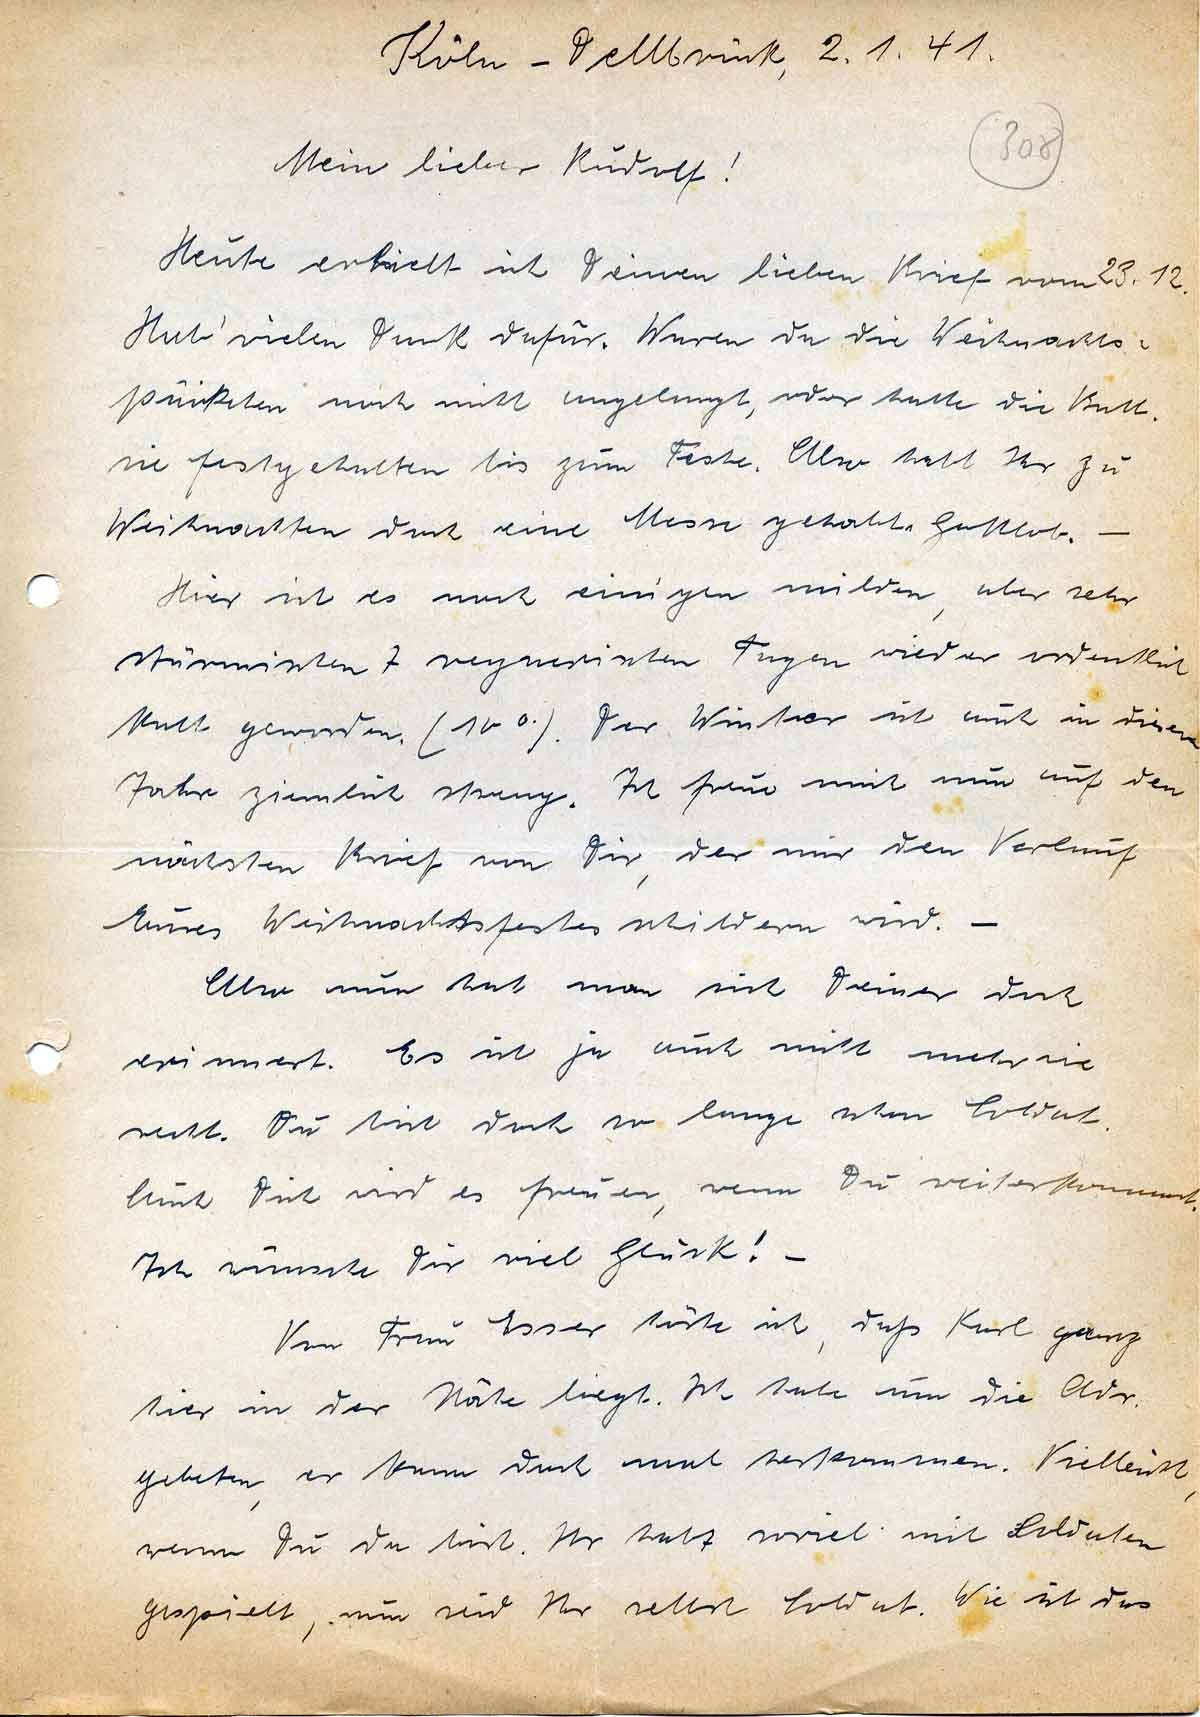 Köln - Dellbrück, 2. 1. 41.
308
Mein lieber Rudolf!
Heute erhielt ich Deinen lieben Brief vom 23. 12.
Hab' vielen Dank dafür. Waren da die Weihnachts-
päckchen noch nicht angelangt, oder hatte die Batt.
sie festgehalten bis zum Feste. Also habt Ihr zu
Weihnachten doch eine Messe gehabt. Gottlob. —
Hier ist es nach einigen milden, aber sehr
stürmischen & regnerischen Tagen wieder ordentlich
kalt geworden. (10 °.). Der Winter ist auch in diesem
Jahre ziemlich streng. Ich freue mich nun auf den
nächsten Brief von Dir, der mir den Verlauf
Eures Weihnachtsfestes schildern wird. —
Also nun hat man sich Deiner doch
erinnert. Es ist ja auch nicht mehr wie
recht. Du bist doch so lange schon Soldat.
Auch Dich wird es freuen, wenn Du weiterkommst.
Ich wünsche Dir viel Glück! —
Von Frau Esser hörte ich, daß Karl ganz
hier in der Nähe liegt. Ich habe um die Adr.
gebeten, er kann doch mal herkommen. Vielleicht,
wenn Du da bist. Ihr habt soviel mit Soldaten
gespielt, nun seid Ihr selbst Soldat. Wie ist das